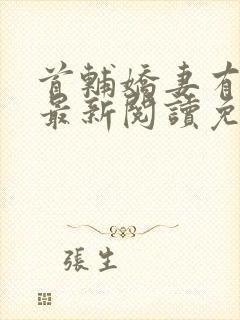 首輔嬌妻有
最新閱讀免
張生